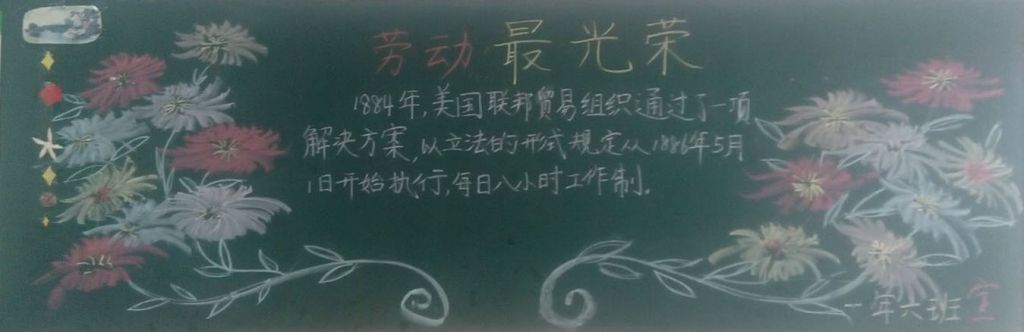 劳动最光荣
1884年,美国联邦贸易组织通过了一项
解决方案,以立法的形式规定从1886年5月
1日开始执行,每日八小时工作制。
一年六班宣